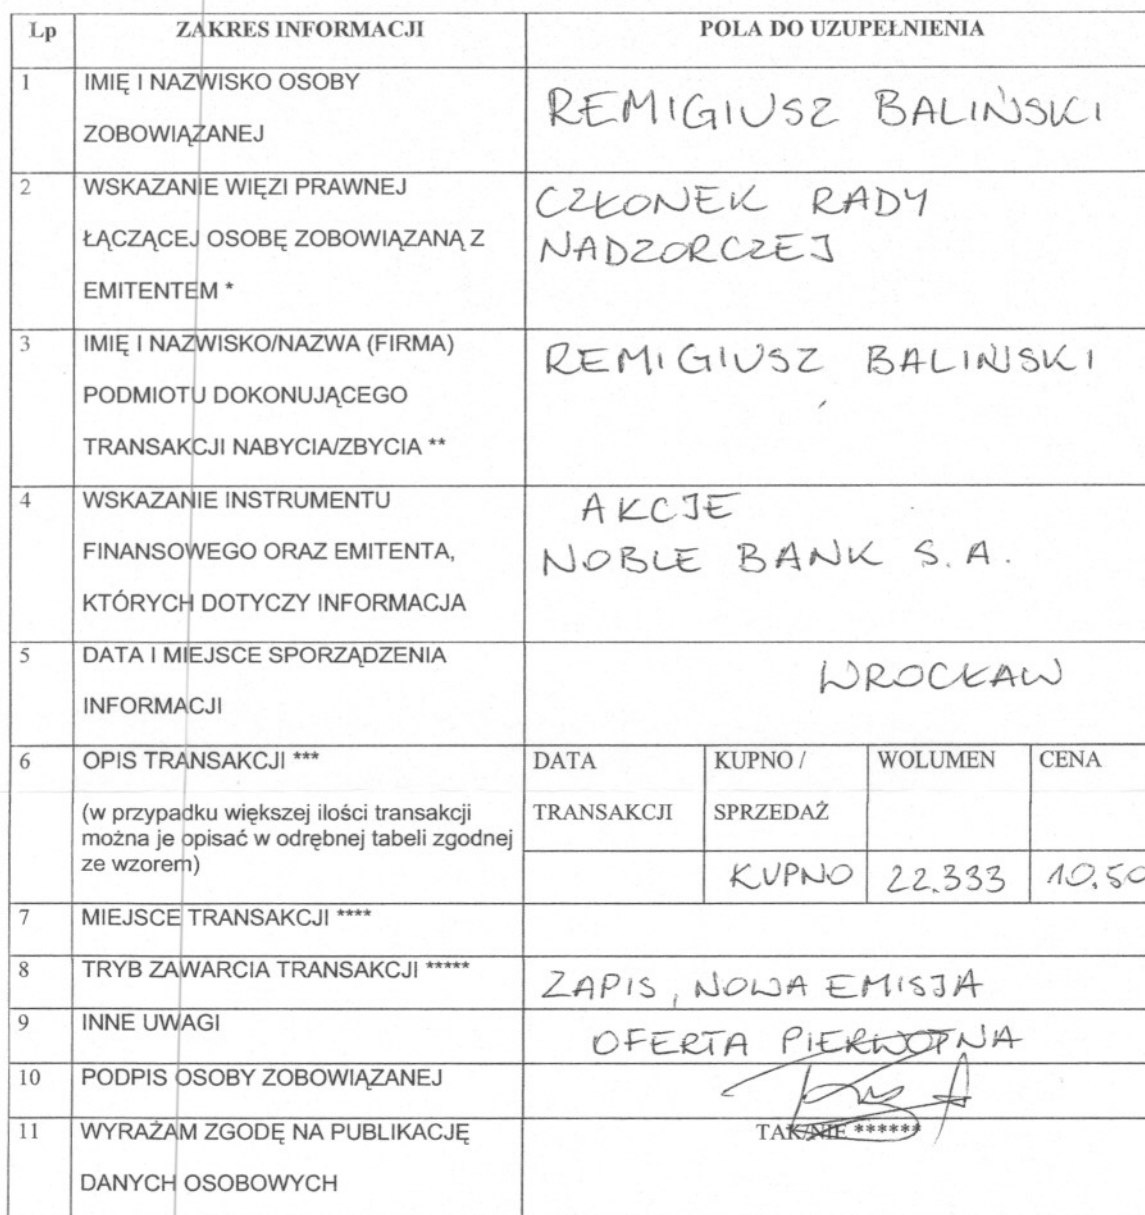 Lp ZAKRES INFORMACJI POLA DO UZUPEŁNIENIA
1 IMIĘ I NAZWISKO OSOBY
ZOBOWIĄZANEJ
REMIGIUSZ BALIŃSKI
2 WSKAZANIE WIĘZI PRAWNEJ
ŁĄCZĄCEJ OSOBĘ ZOBOWIĄZANĄ Z
EMITENTEM *
CZŁONEK RADY
NADZORCZEJ
3 IMIĘ I NAZWISKO/NAZWA (FIRMA)
PODMIOTU DOKONUJĄCEGO
TRANSAKCJI NABYCIA/ZBYCIA **
REMIGIUSZ BALIŃSKI
4 WSKAZANIE INSTRUMENTU
FINANSOWEGO ORAZ EMITENTA,
KTÓRYCH DOTYCZY INFORMACJA
AKCJE
NOBLE BANK S.A.
5 DATA I MIEJSCE SPORZĄDZENIA
INFORMACJI
WROCŁAW
6 OPIS TRANSAKCJI ***
(w przypadku większej ilości transakcji
można je opisać w odrębnej tabeli zgodnej
ze wzorem)
DATA KUPNO / WOLUMEN CENA
TRANSAKCJI SPRZEDAŻ
KUPNO 22.333 10,50
7 MIEJSCE TRANSAKCJI ****
8 TRYB ZAWARCIA TRANSAKCJI *****
ZAPIS, NOWA EMISJA
9 INNE UWAGI
OFERTA PIERWOTNA
10 PODPIS OSOBY ZOBOWIĄZANEJ
11 WYRAŻAM ZGODĘ NA PUBLIKACJĘ
DANYCH OSOBOWYCH
TAK/NIE ******